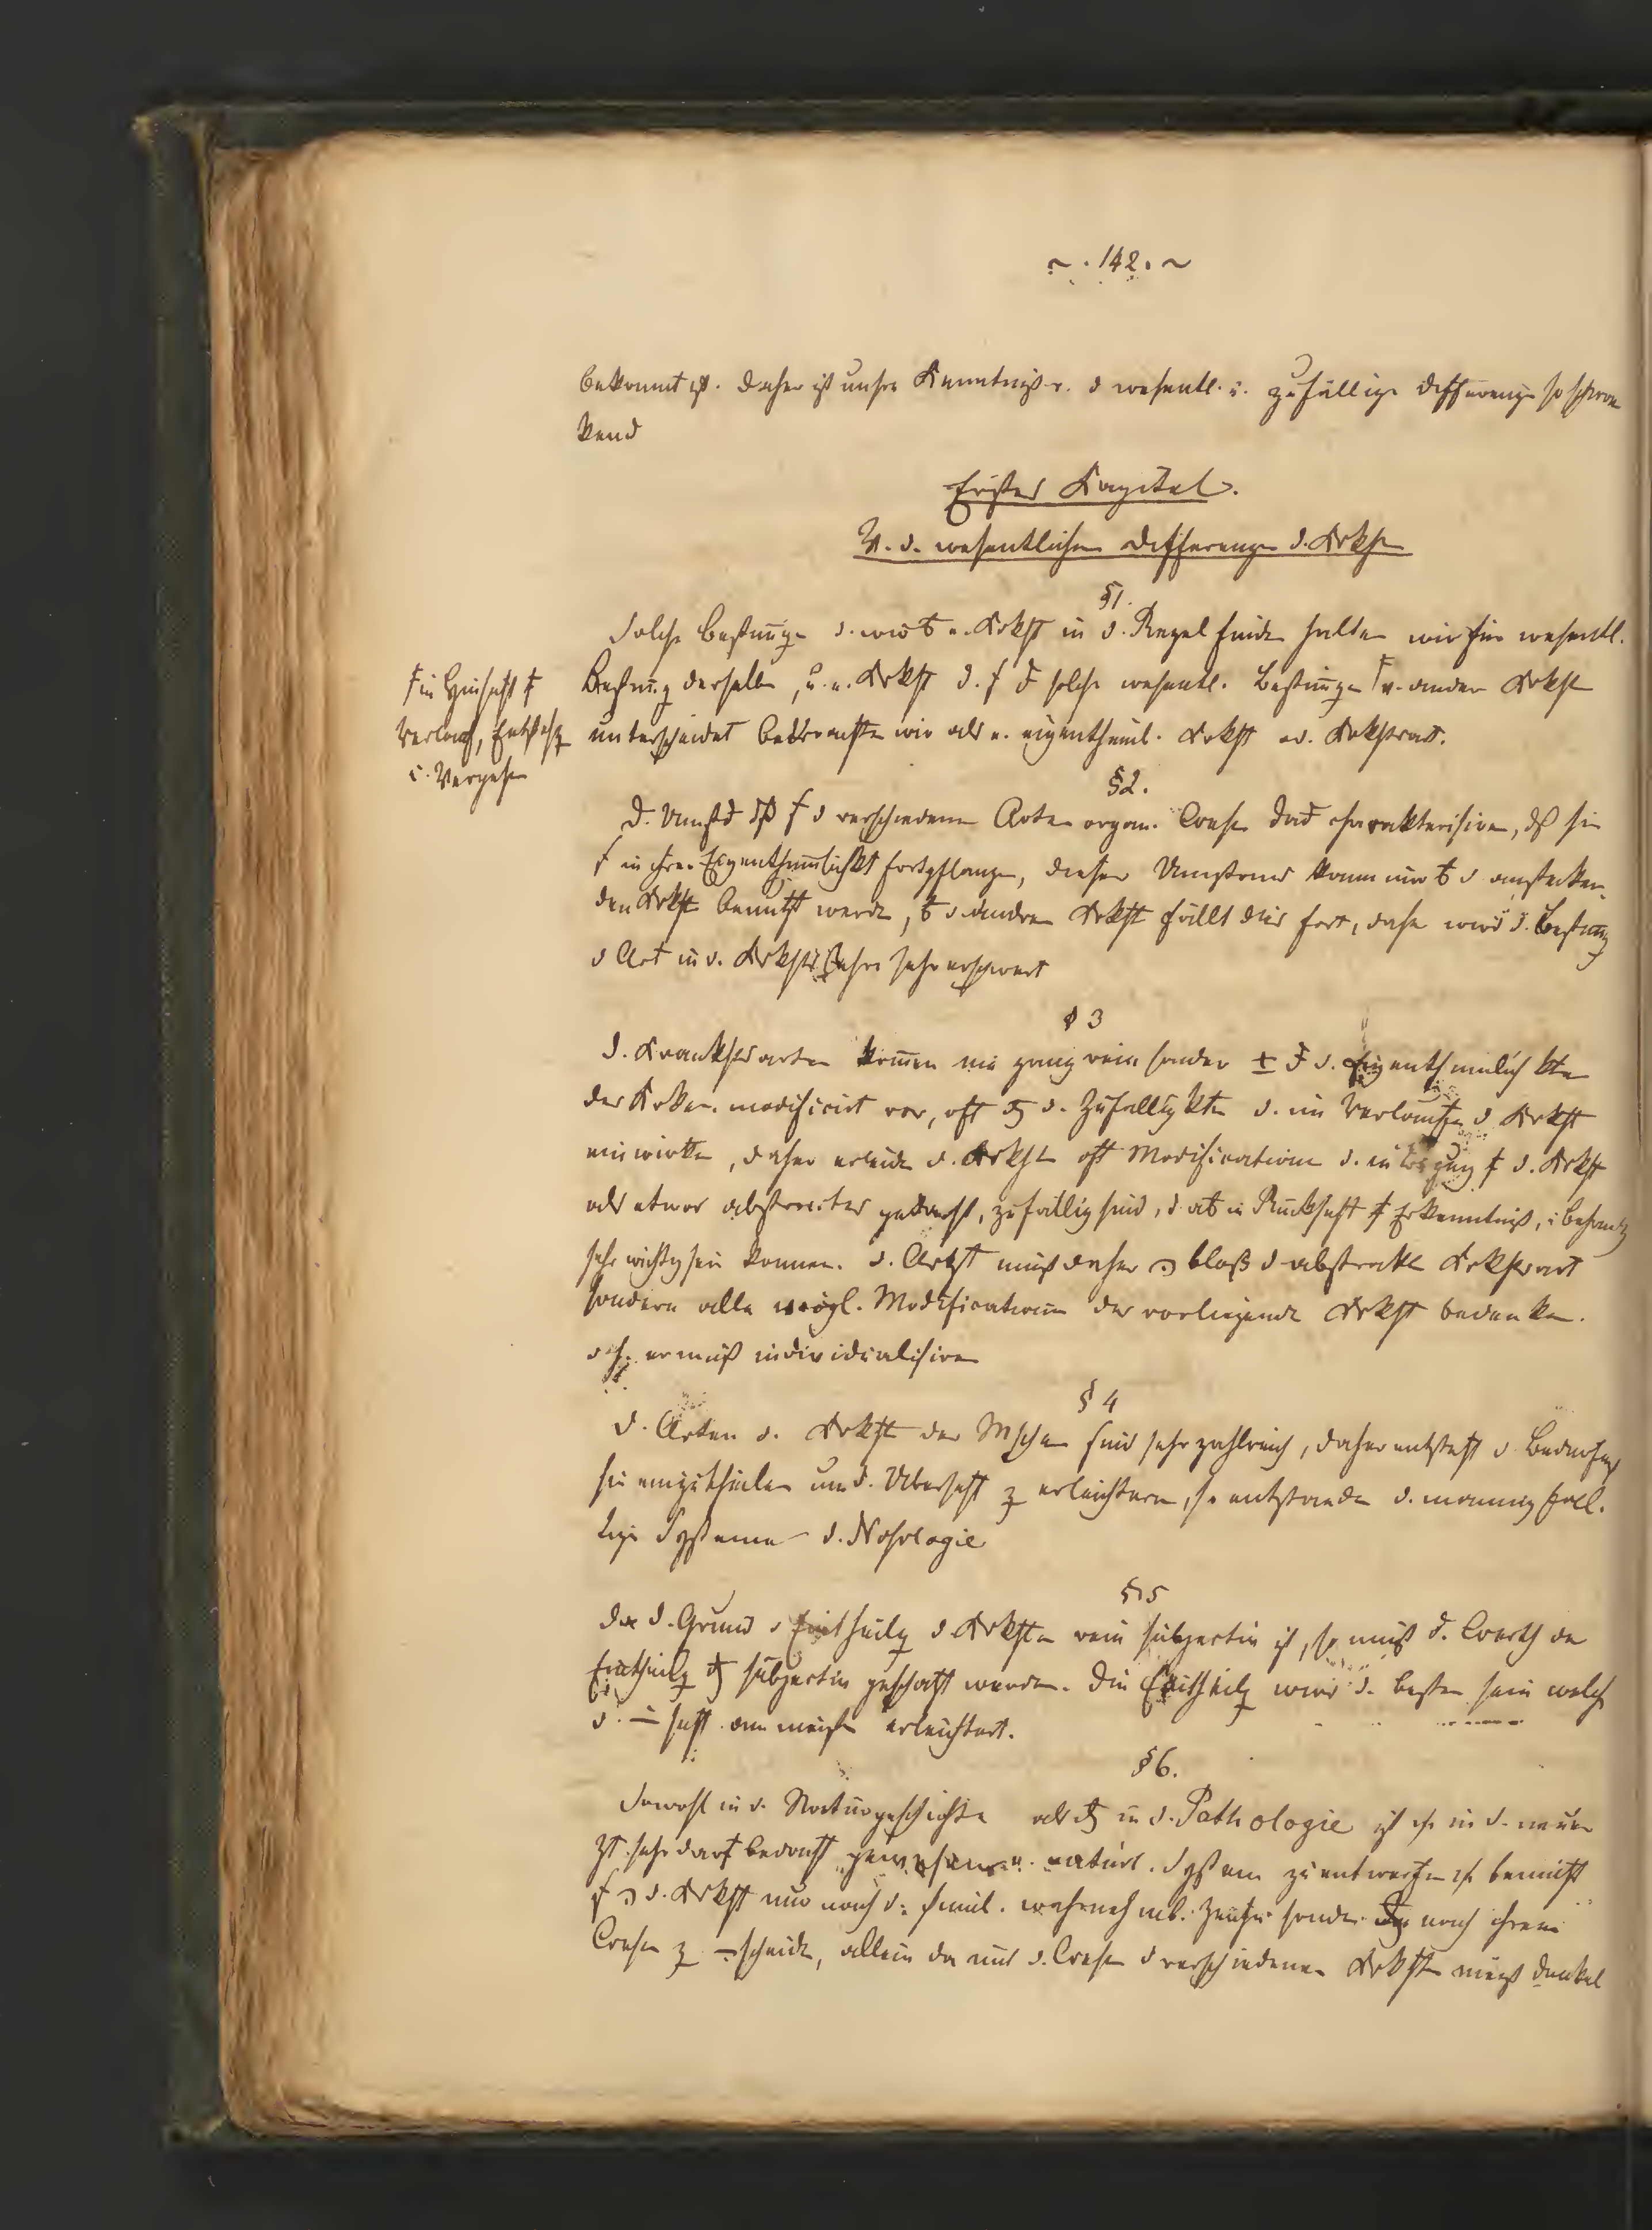 ~ . 142 . ~
bekannt ist. Daher ist unsre Kenntniß v. d wesentl. u. zufällige Differenze so schwan
kend
Erstes Kapitel.
V. d. wesentlichen Differenzen d. Krkh
§1.
Solche Bestimunge d. wir a. Krkht in d. Regel finde halten wir für wesentl.
Bestimug derselbe, u. e. Krkht d. solche wesentl. Bestimungen v. andern Krkht
in Hinsicht
Verlauf, Entsteh
u. Vergehe
unterscheidet betrachte wir als e. eigenthüml. Krkht od. Krkhsart.
§2.
D. Umstd d verschiedene Arten organ. Wese charakterisiren, sie
in ihrer Eigenthümlichkt fortpflanze, dieser Umstand kann nur d anstecken-
den Krkht benutzt werde, d andren Krkht fällt dies fort, daher wird d. Bestimug
d Art in d. Krkhtslehre sehr erschwert
§ 3
D. Krankhtsarten komen nie ganz rein sonder ± d. Eigenthümlichkten
der Kranken modificirt vor, oft d. Zufälligkten d. im Verlaufe d Krkht
einwirken, daher erleide d. Krkht oft Modificatione d. in d. Krkht
als etwas abstractes gedacht, zufällig sind, d. in Rücksicht Erkenntniß, u Behandlg
sehr wichtig sein können. d. Artzt muß daher bloß d abstrakte Krkhsart
sondern alle mögl. Modificationen der vorliegende Krkht bedenken.
d h. er muß individualisiren
§ 4
D. Arten d. Krkht der Mschen sind sehr zahlreich, daher entsteht d Bedürfniß
sie einzutheilen um d. Übersicht z erleichtern, so entstanden d. mannigfal-
tige Systeme d. Nosologie
§ 5
Da d. Grund d Eintheilg d Krkhten rein subjectiv ist, so muß d. Werth der
Eintheilg subjectiv geschätzt werden. Die Eintheilg wird d. beste sein welche
d. — sicht am meisten erleichtert.
§6.
Sowohl in d. Naturgeschichte als in d. Pathologie ist in d. neuern
Zt sehr darauf bedacht natürl. System zu entwerfen bemüht
d. Krkht nur nach d. sinnl. wahrnehmb. Zeichen sondern nach ihrem
Wesen z — scheide, allein da uns d. Wesen d verschiedenen Krkhten meist dunkel